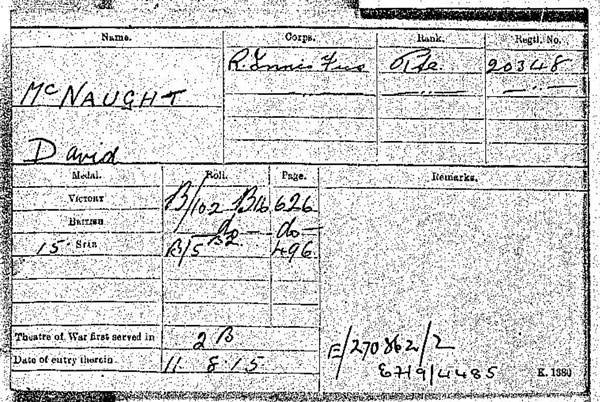 Name. Corps. Rank. Regtl. No.
R. Innis Fus Pte. 20348
McNAUGHT
David
Medal. Roll. Page. Remarks.
VICTORY B/102 B16 626
BRITISH do do
15 STAR B/5 B2 496
Theatre of War first served in 2B
Date of entry therein 11 8.15
E/270862/2
K. 1380